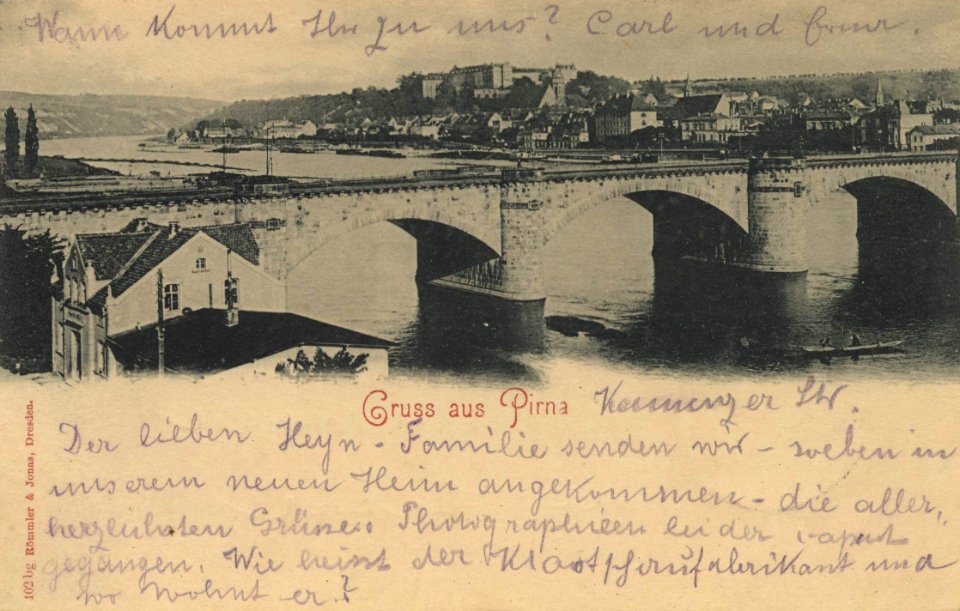 Wann kommt Ihr zu uns? Carl und
Gruss aus Pirna
Kamenzer Str.
Der lieben Heyn-Familie senden wir - soeben in
unserem neuen Heim angekommen - die aller,
herzlichsten Grüsse. Photographieen leider caput
gegangen. Wie heisst der fabrikant und
wo wohnt er?
102 bg Römmler & Jonas, Dresden.